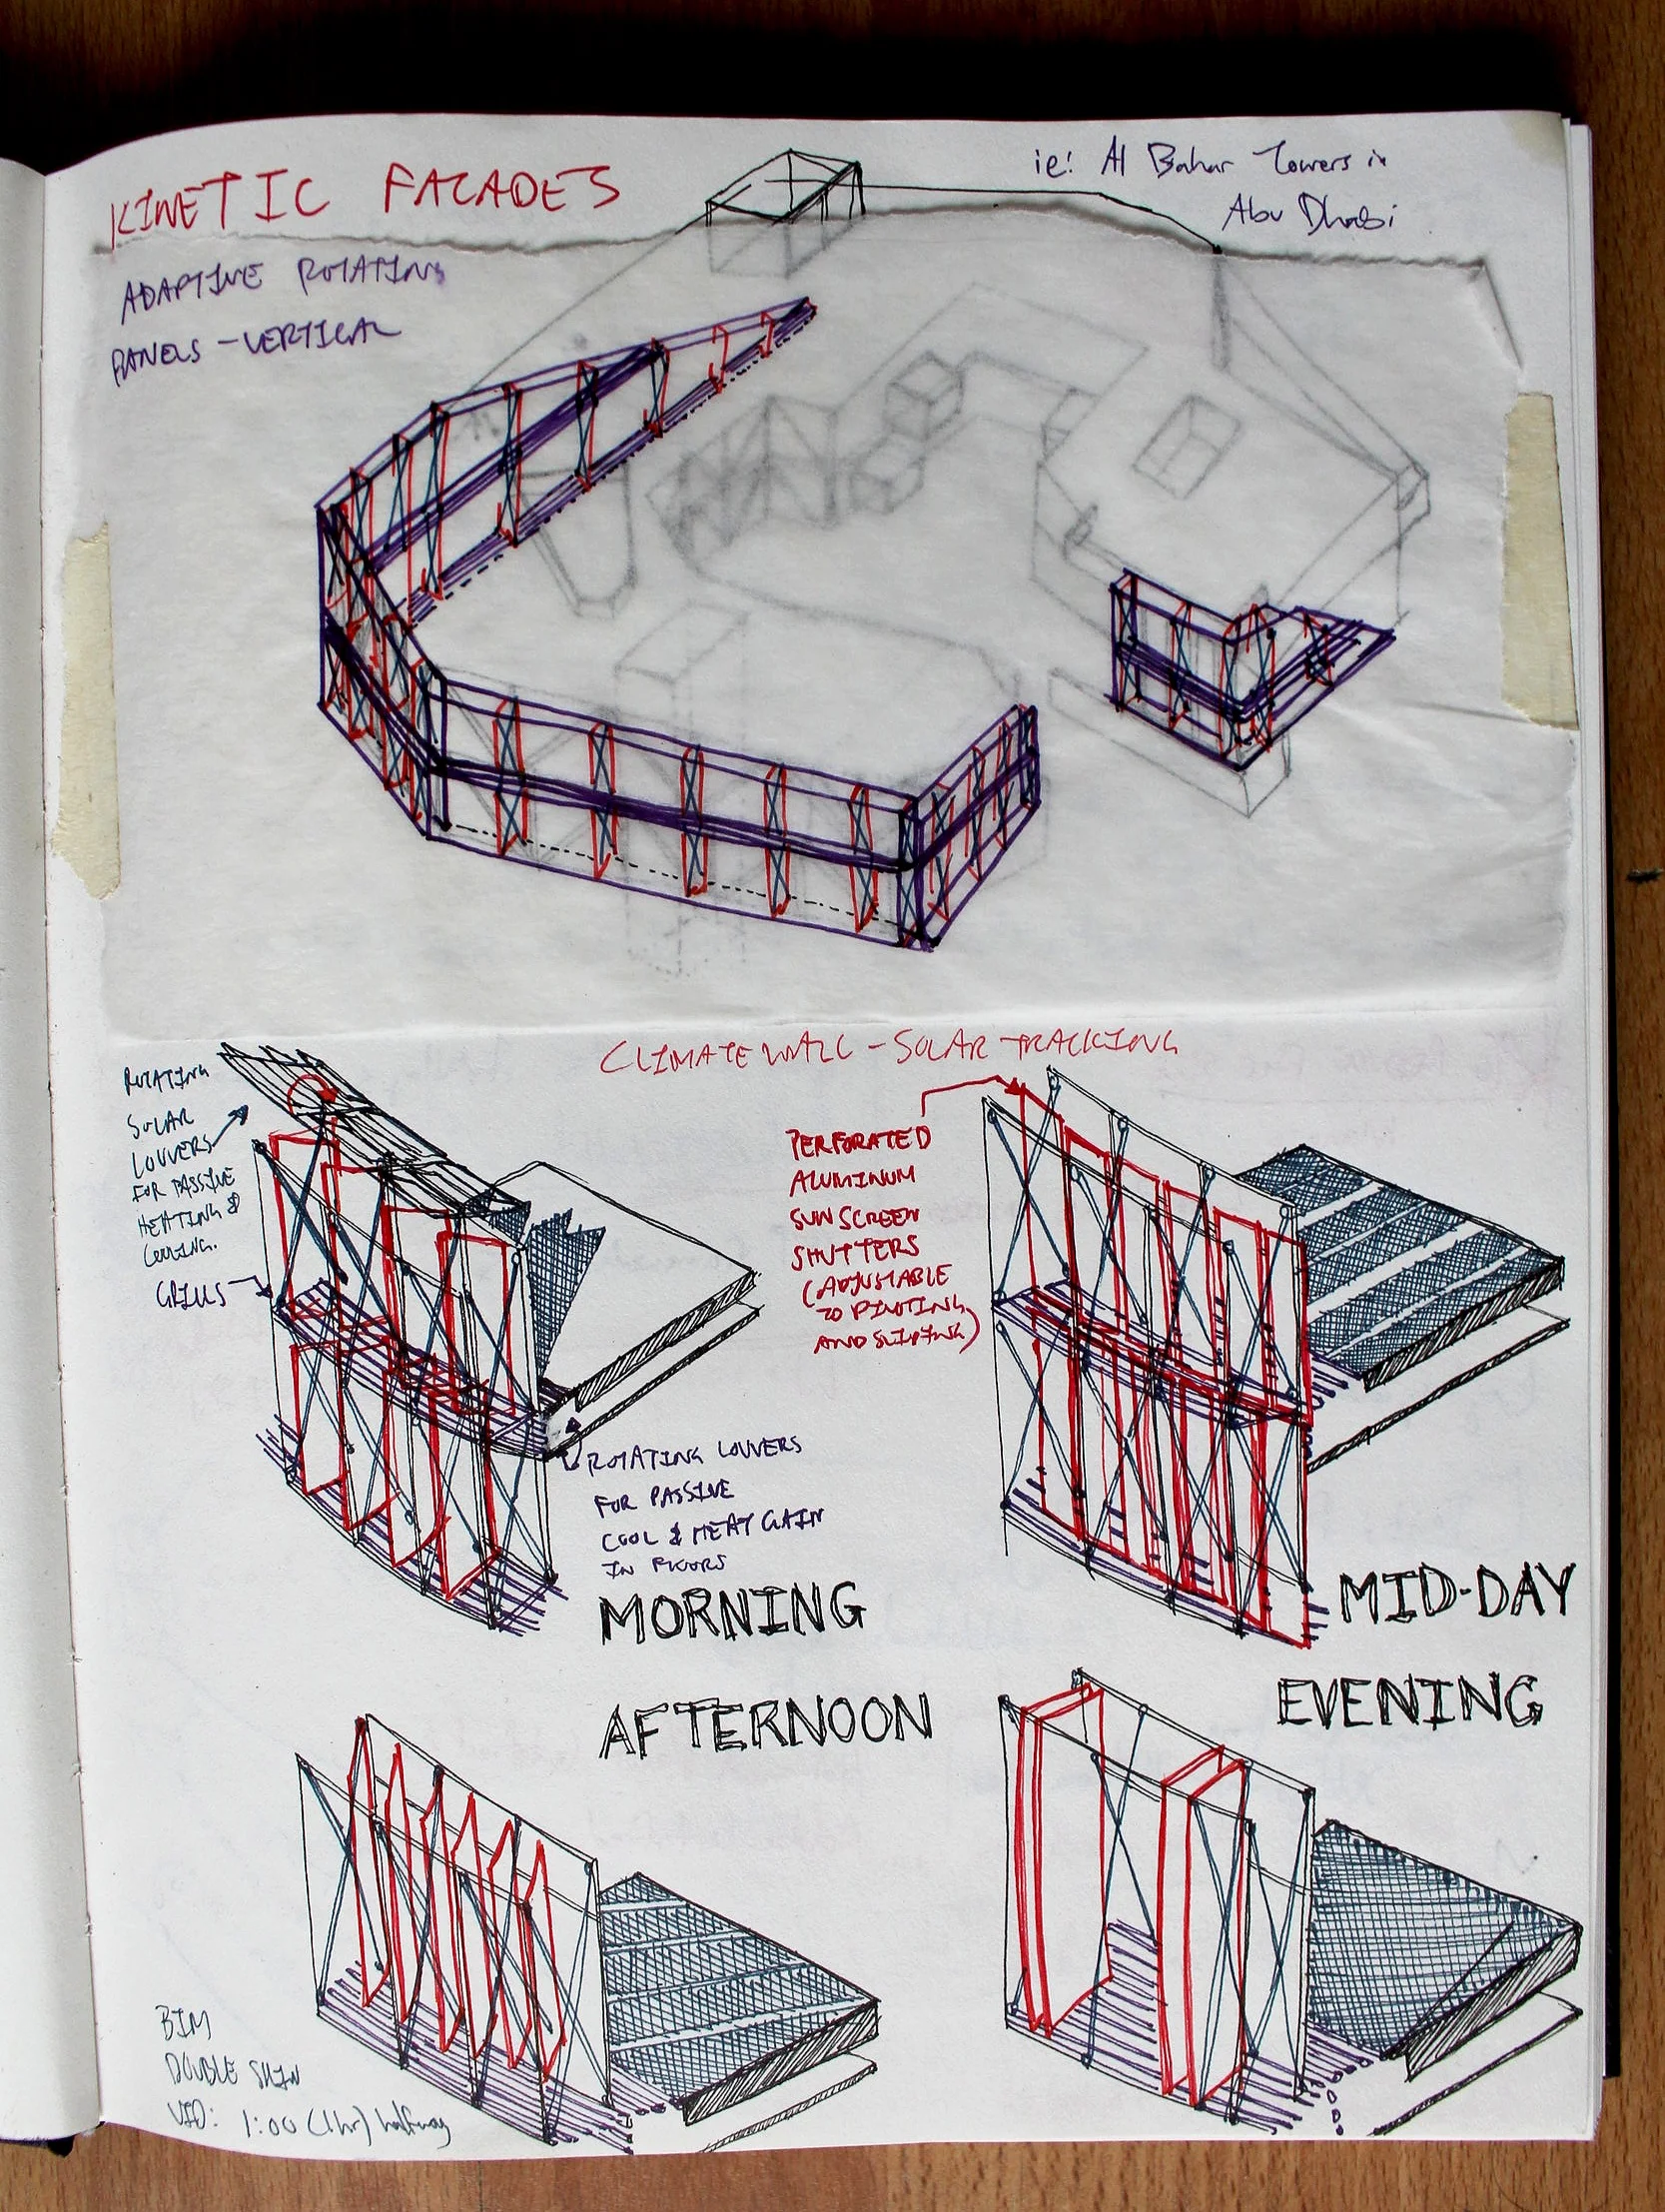 KINETIC FACADES
ie: Al Bahar Towers in
Abu Dhabi
ADAPTIVE ROTATING
PANELS - VERTICAL
CLIMATE WALL - SOLAR TRACKING
ROTATING
SOLAR
LOUVERS
FOR PASSIVE
HEATING &
COOLING.
GRILLS
PERFORATED
ALUMINUM
SUN SCREEN
SHUTTERS
(ADJUSTABLE
TO PIVOTING
AND SLIDING)
ROTATING LOUVERS
FOR PASSIVE
COOL & HEAT GAIN
IN FLOORS
MORNING
MID-DAY
AFTERNOON
EVENING
BIM
DOUBLE SKIN
VID: 1:00 (1hr) halfway